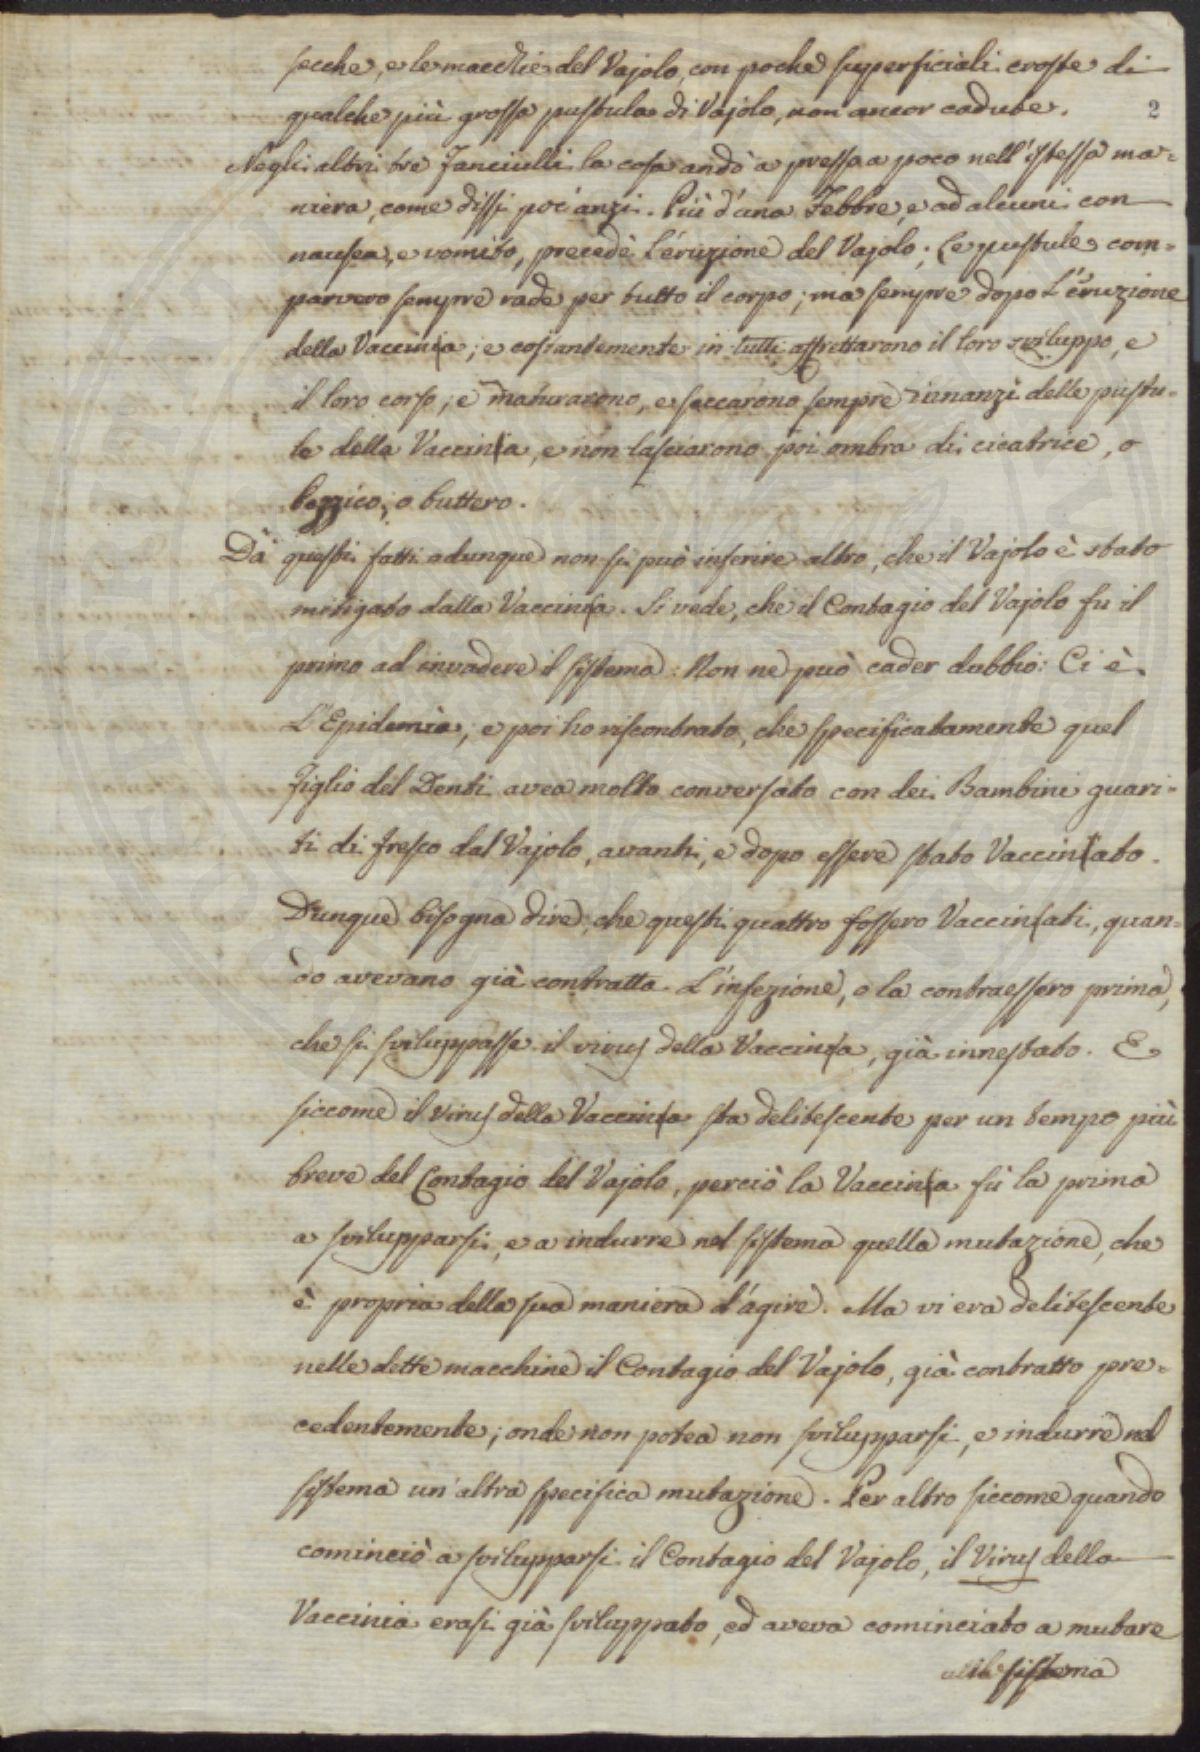 secche, e le macchie del Vajolo, con poche superficiali croste di
qualche più grossa pustula di Vajolo, non ancor cadute.
2
Negli altri tre Fanciulli la cosa andò a pressa a poco nell'istessa ma=
niera, come dissi poc'anzi. Più d'una Febbre, e ad alcuni con
nausea, e vomito, precedè l'eruzione del Vajolo; Le pustule com=
parvero sempre rade per tutto il corpo; ma sempre dopo l'éruzione
della Vaccinia; e costantemente in tutti affrettarono il loro sviluppo, e
il loro corso; e maturarono, e seccarono sempre innanzi delle pustu=
le della Vaccina, e non lasciarono poi ombra di cicatrice, o
bezzico, o buttero.
Dà questi fatti adunque non si può inferire altro, che il Vajolo è stato
mitigato dalla Vaccina. Si vede, che il Contagio del Vajolo fu il
primo ad invadere il sistema: Non ne può cader dubbio: Ci è
L'Epidemia; e poi ho riscontrato, che specificatamente quel
Figlio del Denti avea molto conversato con dei Bambini guari=
ti di fresco dal Vajolo, avanti, e dopo essere stato Vaccinato.
Dunque bisogna dire, che questi quattro fossero Vaccinati, quan=
do avevano già contratta L'infezione, o la contraessero prima,
che si sviluppasse il virus della Vaccina, già innestato. E
siccome il virus della Vaccina sta delitescente per un tempo più
breve del Contagio del Vajolo, perciò la Vaccina fù la prima
a svilupparsi, e a indurre nel sistema quella mutazione, che
è propria della sua maniera d'agire. Ma vi era delitescente
nelle dette macchine il Contagio del Vajolo, già contratto pre=
cedentemente; onde non potea non svilupparsi, e indurre nel
sistema un'altra specifica mutazione. Per altro siccome quando
cominciò a svilupparsi il Contagio del Vajolo, il Virus della
Vaccinia erasi già sviluppato, ed aveva cominciato a mutare
sistema